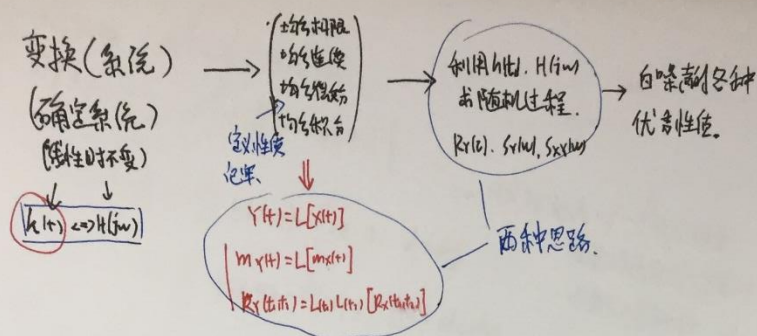 变换(系统)
(确定系统)
(线性时不变)
h(t) <=> H(jw)
均方极限
均方连续
均方微分
均方积分
定义性质
记牢、
Y(t)=L[X(t)]
m_Y(t)=L[m_X(t)]
R_Y(t₁,t₂)=L(t₁)L(t₂)[R_X(t₁,t₂)]
利用h(t). H(jw)
求随机过程.
R_Y(τ). S_Y(w), S_XY(w)
两种思路.
白噪声的各种
优良性质。